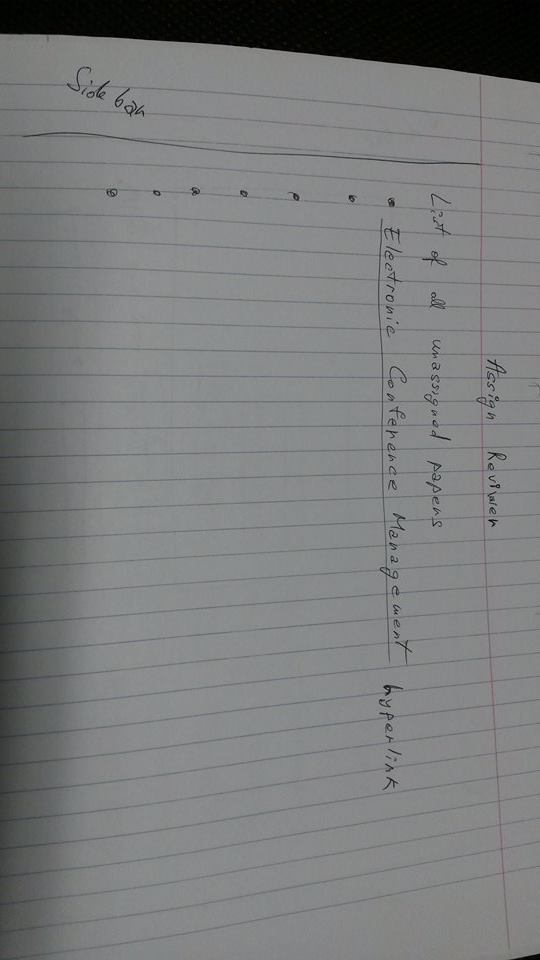 Assign Reviwer
List of all unassigned papers
Electronic Conference Management hyperlink
Side bar